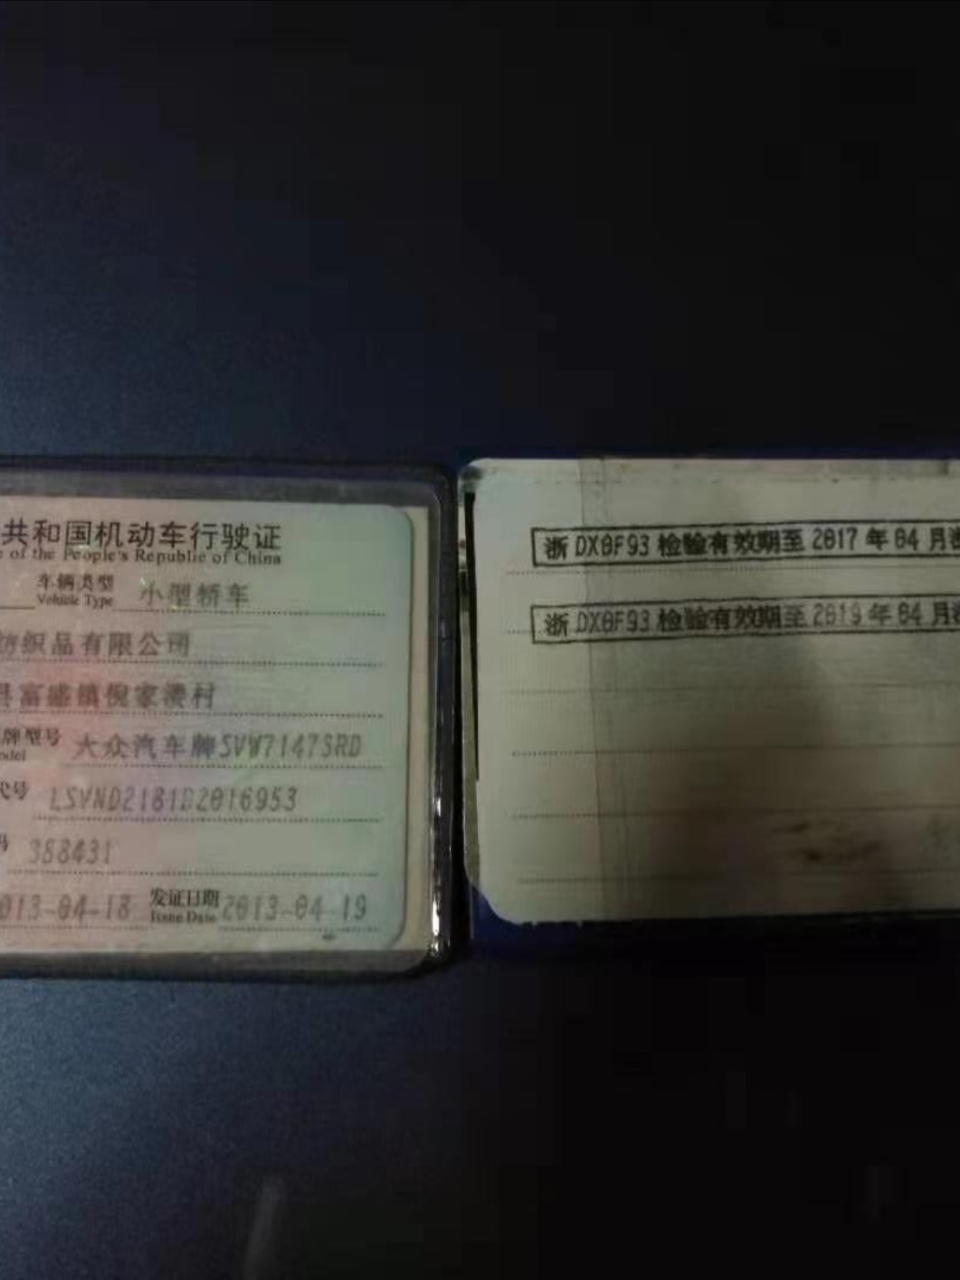 共和国机动车行驶证
of the People's Republic of China
车辆类型 小型轿车
Vehicle Type
纺织品有限公司
县富盛镇倪家溇村
牌型号 大众汽车牌SVW7147SRD
代号 LSVND2181D2016953
388431
013-04-18 发证日期 2013-04-19
Issue Date
浙DX0F93检验有效期至2017年04月
浙DX0F93检验有效期至2019年04月